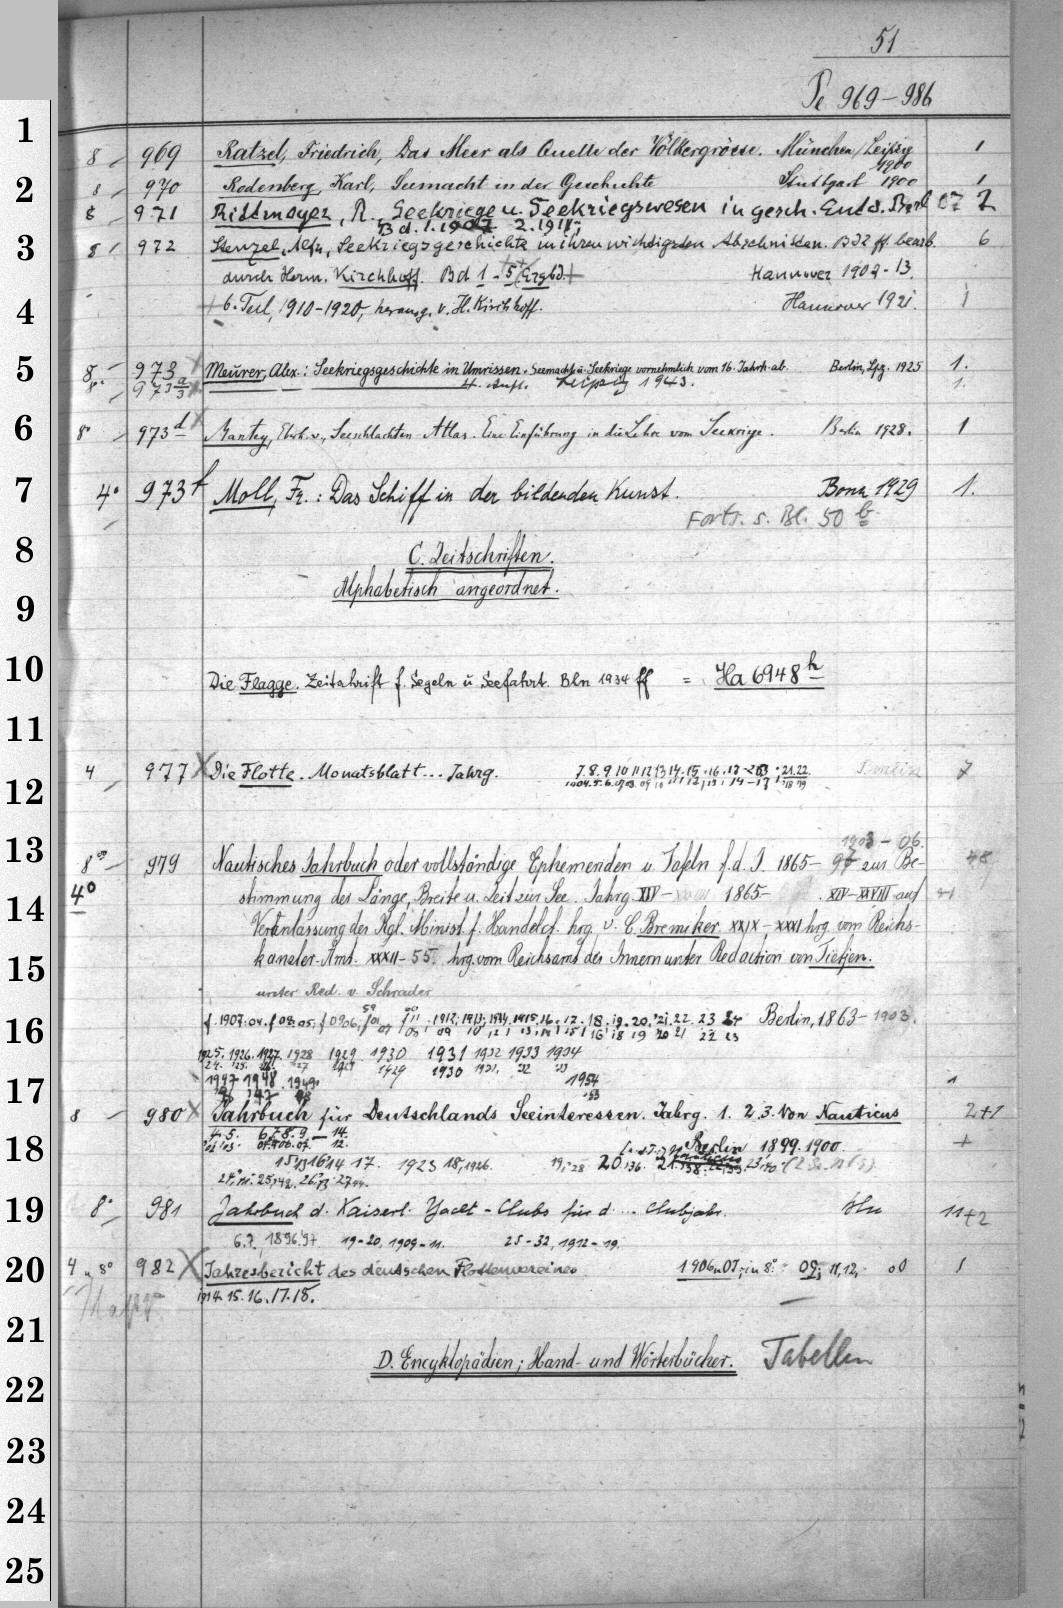 51
Pe 969-986
1
8 969 Ratzel, Friedrich, Das Meer als Quelle der Völkergrösse. München/Leipzig 1900 1
2
8 970 Rodenberg, Karl, Seemacht in der Geschichte Stuttgart 1900 1
8 971 Rittmeyer, R., Seekriege u. Seekriegswesen in gesch. Entw. Berl 07 2
Bd. 1. 1907 2. 1911;
3
8 972 Stenzel, Alfr., Seekriegsgeschichte in ihren wichtigsten Abschnitten. Bd 2 ff. bearb. 6
durch Herm. Kirchhoff. Bd 1-5 Ergbd. Hannover 1909-13.
4
6. Teil, 1910-1920, herausg. v. H. Kirchhoff. Hannover 1921. 1
5
8 973 Meurer, Alex.: Seekriegsgeschichte in Umrissen. Seemacht u. Seekriege vornehmlich vom 16. Jahrh. ab. Berlin, Lpzg. 1925 1.
8° 973 a 4. Aufl. Leipzig 1943. 1.
6
8° 973 d Mantey, Eberh. v., Seeschlachten-Atlas. Eine Einführung in die Lehre vom Seekriege. Berlin 1928. 1
7
4° 973 f Moll, Fr.: Das Schiff in der bildenden Kunst. Bonn 1929 1.
Forts. s. Bl. 50 b
8
C. Zeitschriften.
Alphabetisch angeordnet.
9
10
Die Flagge. Zeitschrift f. Segeln u Seefahrt. Bln 1934 ff = Ha 6948 h
11
4 977 Die Flotte. Monatsblatt... Jahrg. 7. 8. 9. 10 11 12 13 14. 15. 16. 17-20. 21. 22. Berlin 7
12
13
8° 979 Nautisches Jahrbuch oder vollständige Ephemeriden u. Tafeln f. d. J. 1865- zur Be-
1903-06.
4°
14
stimmung der Länge, Breite u. Zeit zur See. Jahrg. XIV- 1865- XIV-XXVIII auf
Veranlassung des Kgl. Minist. f. Handel cf. hrg. v. C. Bremiker XXIX-XXXI hrg. vom Reichs-
15
kanzler-Amt. XXXII-55. hrg. vom Reichsamt des Innern unter Redaction von Tietjen.
unter Red. v. Schrader
16
f. 1907: 04. f 08: 05. f 09 06. 1912; 1913; 1914, 1915, 16. 17. 18. 19. 20. 21. 22. 23 24 Berlin, 1863-1903.
1925. 1926. 1927. 1928 1929 1930 1931 1932 1933 1934
17
1947 1948 1949 1954
8 980 Jahrbuch für Deutschlands Seeinteressen. Jahrg. 1. 2. 3. Von Nauticus 2+1
18
4. 5. 6. 7. 8. 9-14. Berlin 1899. 1900.
15 16 17. 1923 18, 1926. 20
19
8° 981 Jahrbuch d. Kaiserl. Yacht-Clubs für d... Clubjahr. Bln 11+2
6. 7, 1896/97 19-20, 1909-11. 25-32, 1912-19.
20
4 u 8° 982 Jahresbericht des deutschen Flottenvereines 1906 u 07, in 8° 09; 11, 12, 1
1914. 15. 16. 17. 18.
21
D. Encyklopädien; Hand- und Wörterbücher. Tabellen
22
23
24
25